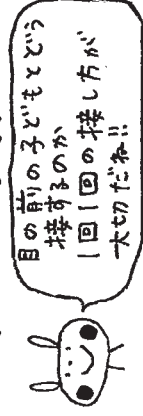 目の前の子どもとどう
接するのか
1回1回の接し方が
大切だね!!